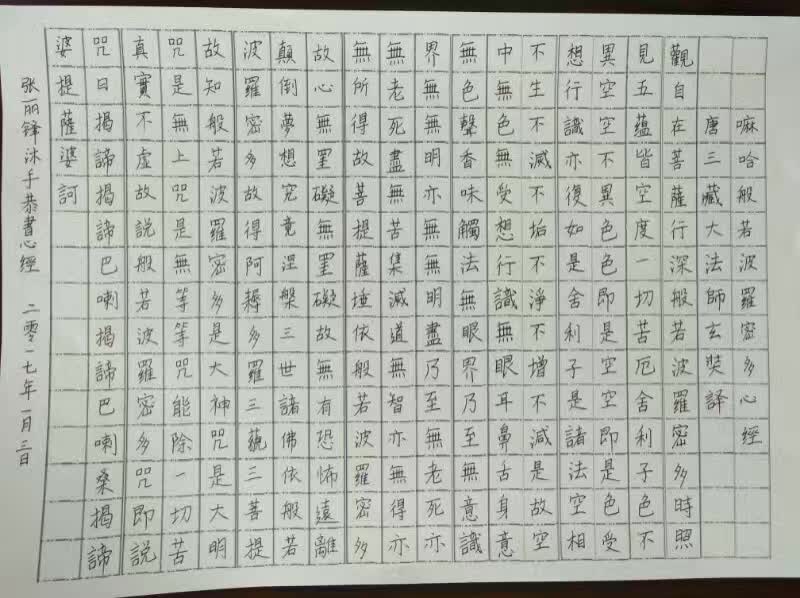 嘛哈般若波羅密多心經
唐三藏大法師玄奘譯
觀自在菩薩行深般若波羅密多時照
見五蘊皆空度一切苦厄舍利子色不
異空空不異色色即是空空即是色受
想行識亦復如是舍利子是諸法空相
不生不滅不垢不淨不增不減是故空
中無色無受想行識無眼耳鼻舌身意
無色聲香味觸法無眼界乃至無意識
界無無明亦無無明盡乃至無老死亦
無老死盡無苦集滅道無智亦無得亦
無所得故菩提薩埵依般若波羅密多
故心無罣礙無罣礙故無有恐怖遠離
顛倒夢想究竟涅槃三世諸佛依般若
波羅密多故得阿耨多羅三藐三菩提
故知般若波羅密多是大神咒是大明
咒是無上咒是無等等咒能除一切苦
真實不虛故說般若波羅密多咒即說
咒曰揭諦揭諦巴喇揭諦巴喇桑揭諦
婆提薩婆訶
张丽锋沐手恭書心經 二零一七年一月三日